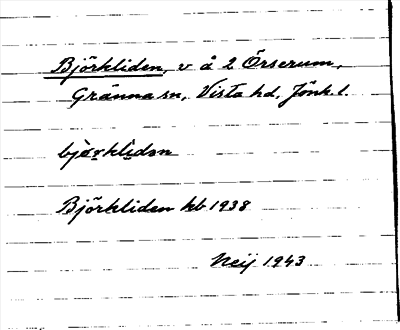 Björkliden, v å 2 Örserum,
Gränna sn, Vista hd, Jönk l.
bjö̀rklìdən
Björkliden kb 1938
Neij 1943